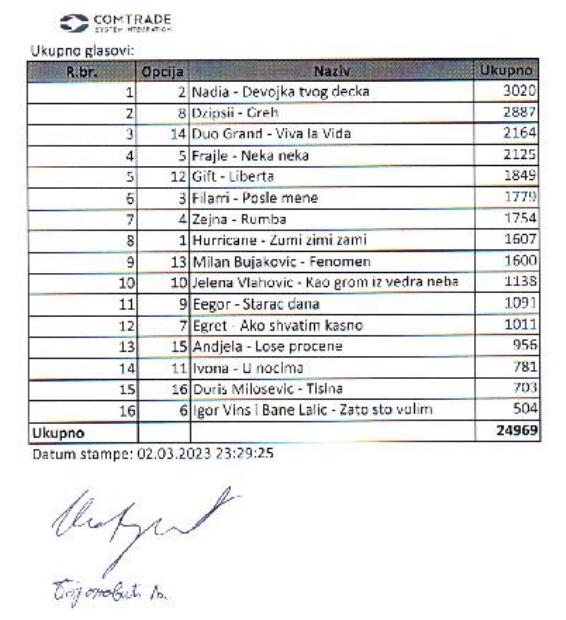 COMTRADE
SYSTEM INTEGRATION
Ukupno glasovi:
R.br. Opcija Naziv Ukupno
1 2 Nadia - Devojka tvog decka 3020
2 8 Dzipsii - Greh 2887
3 14 Duo Grand - Viva la Vida 2164
4 5 Frajle - Neka neka 2125
5 12 Gift - Liberta 1849
6 3 Filarri - Posle mene 1779
7 4 Zejna - Rumba 1754
8 1 Hurricane - Zumi zimi zami 1607
9 13 Milan Bujakovic - Fenomen 1600
10 10 Jelena Vlahovic - Kao grom iz vedra neba 1138
11 9 Eegor - Starac dana 1091
12 7 Egret - Ako shvatim kasno 1011
13 15 Andjela - Lose procene 956
14 11 Ivona - U nocima 781
15 16 Doris Milosevic - Tisina 703
16 6 Igor Vins i Bane Lalic - Zato sto volim 504
Ukupno 24969
Datum stampe: 02.03.2023 23:29:25